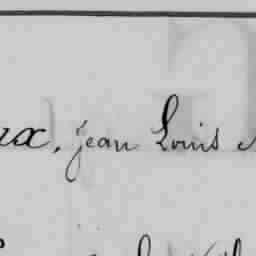 ux, jean Louis